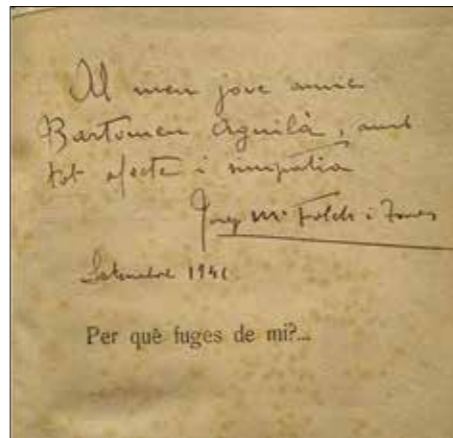 Al meu jove amic
Bartomeu Aguilà, amb
tot afecte i simpatia
Josep Mª Folch i Torres
Setembre 1941
Per què fuges de mi?...